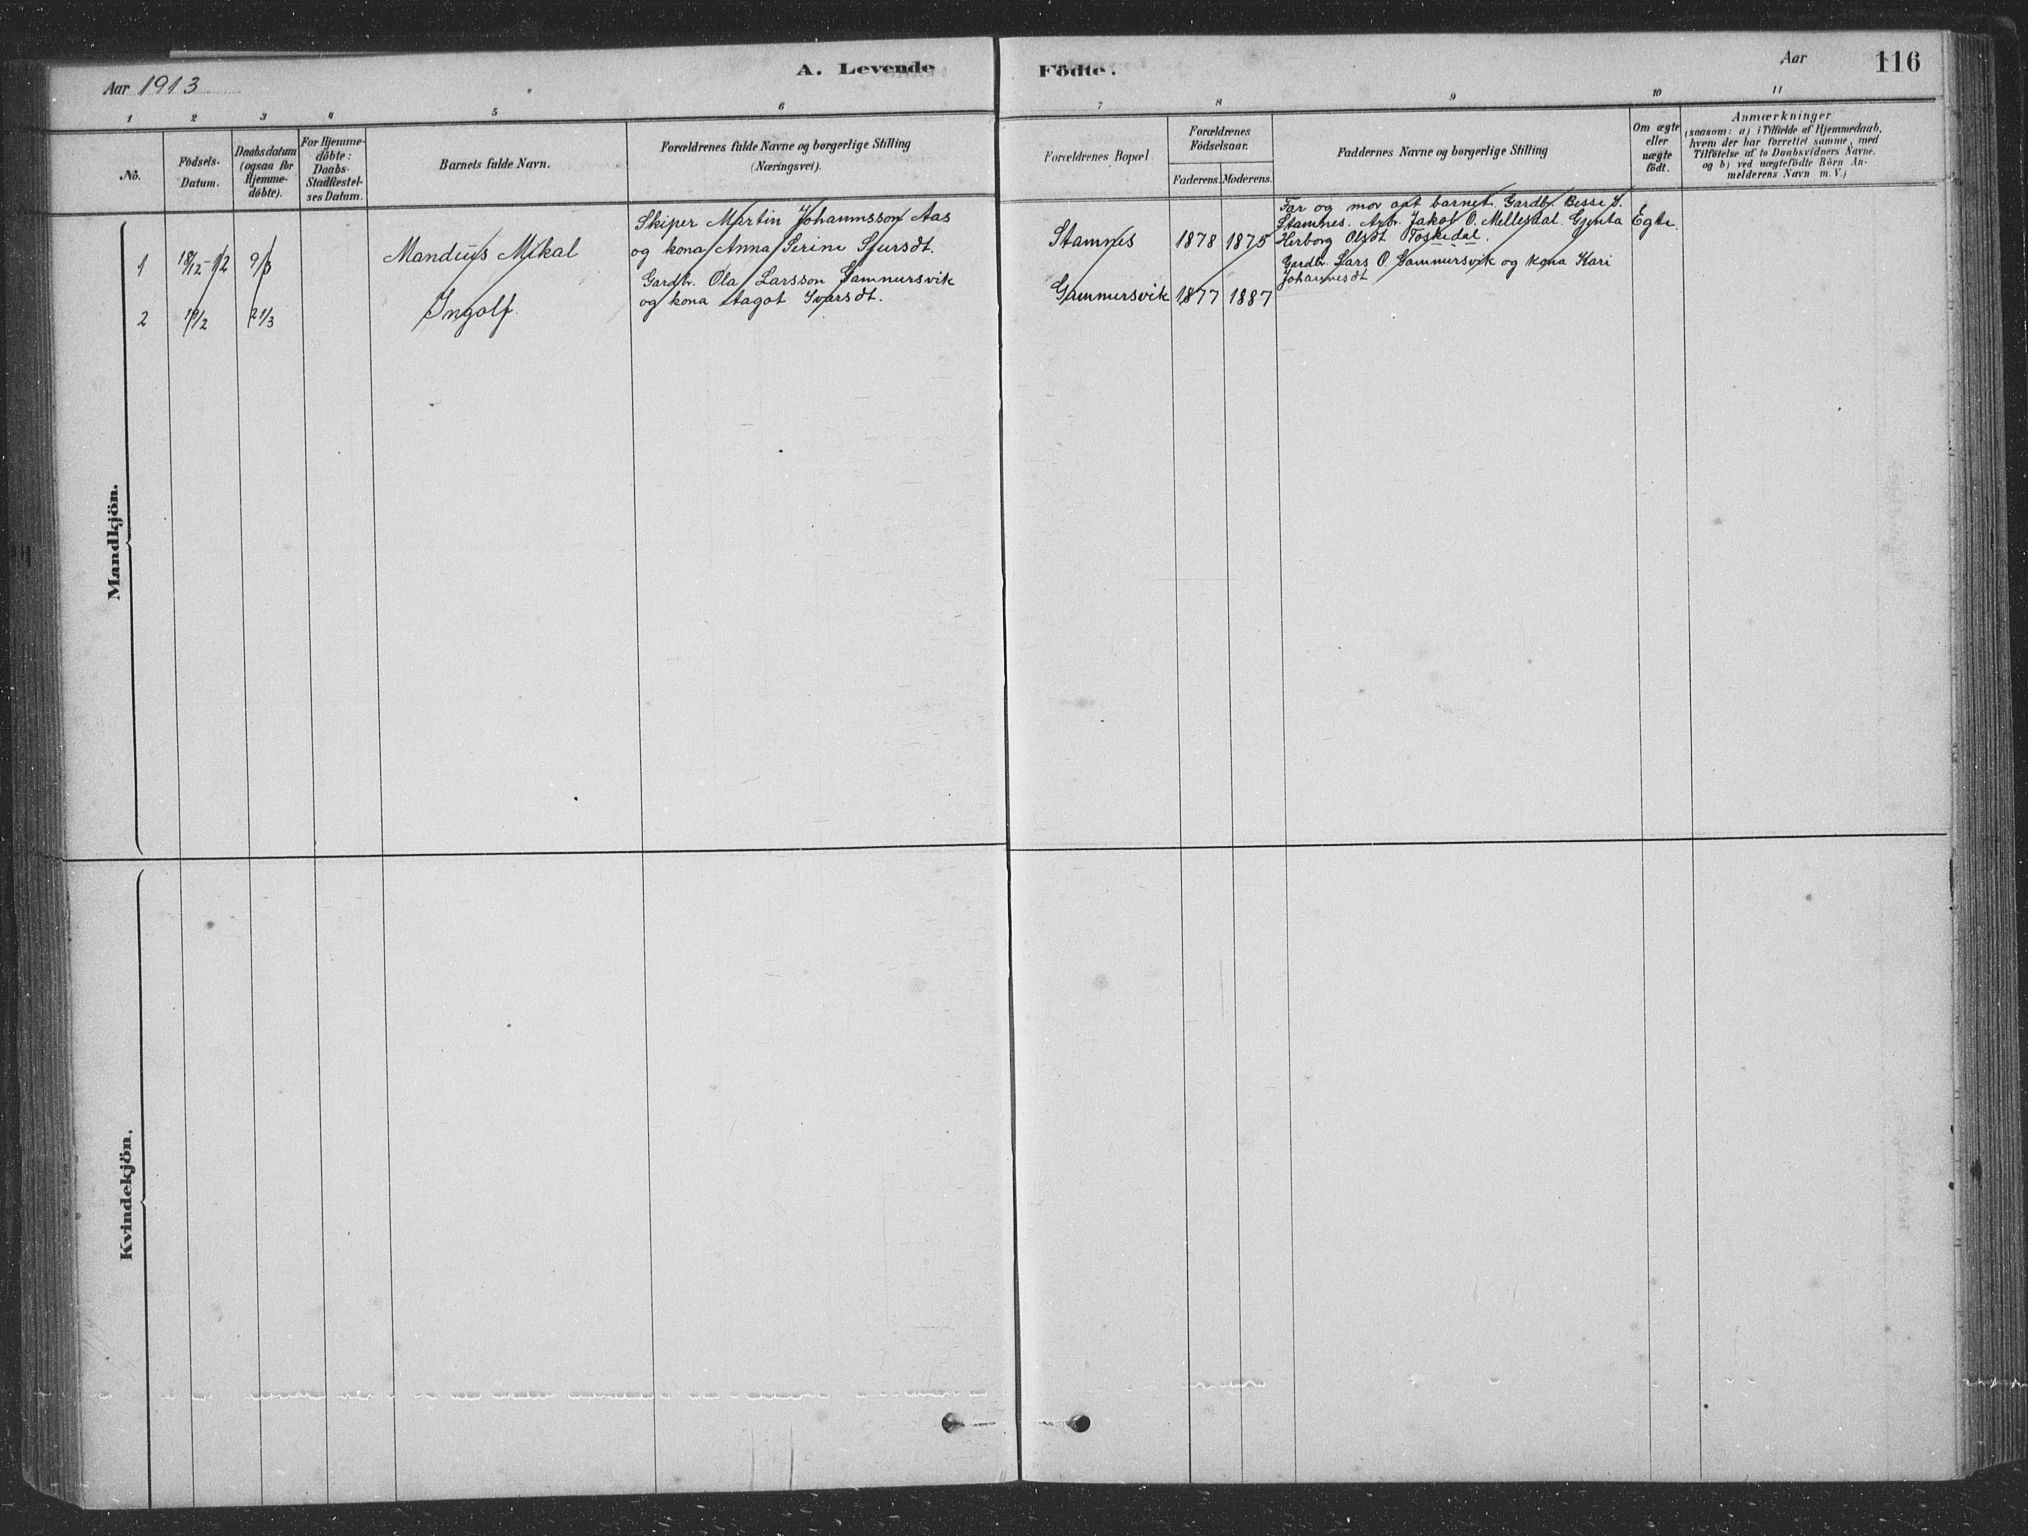 Aar 1913
A. Levende
Födte.
Aar
116
1 2 3 4 5 6 7 8 9 10 11
No.
Födsels-
Datum.
Daabsdatum
(ogsaa för
Hjemme-
döbte).
For Hjemme-
döbte:
Daabs-
Stadfæstel-
ses Datum.
Barnets fulde Navn.
Forældrenes fulde Navne og borgerlige Stilling
(Næringsvei).
Forældrenes Bopæl
Forældrenes
Födselsaar.
Faderens. Moderens.
Faddernes Navne og borgerlige Stilling
Om ægte
eller
uægte
födt.
Anmærkninger
(saasom: a) i Tilfælde af Hjemmedaab,
hvem der har forrettet samme, med
Tilföielse af to Daabsvidners Navne.
og b) ved uægtefödte Börn An-
melderens Navn m. V.)
Mandkjön.
1
18/12-12
Mandius Mikal
Skiper Martin Johannsson Aas
og kona Anna Serine Sjursdt.
Stamnes
1878 1875
Far og mor aat barnet. Gardbr. Besse S.
Stamnes. Arb. Jakob O. Mellesdal. Gjenta
Herborg Olsdt Toskedal.
Egte.
2
19/2
21/3
Ingolf.
Gardbr. Ola Larsson Gammersvik
og kona Aagot Ivarsdt.
Gammersvik
1877 1887
Gardbr. Lars O. Gammersvik og kona Kari
Johannesdt
Kvindekjön.